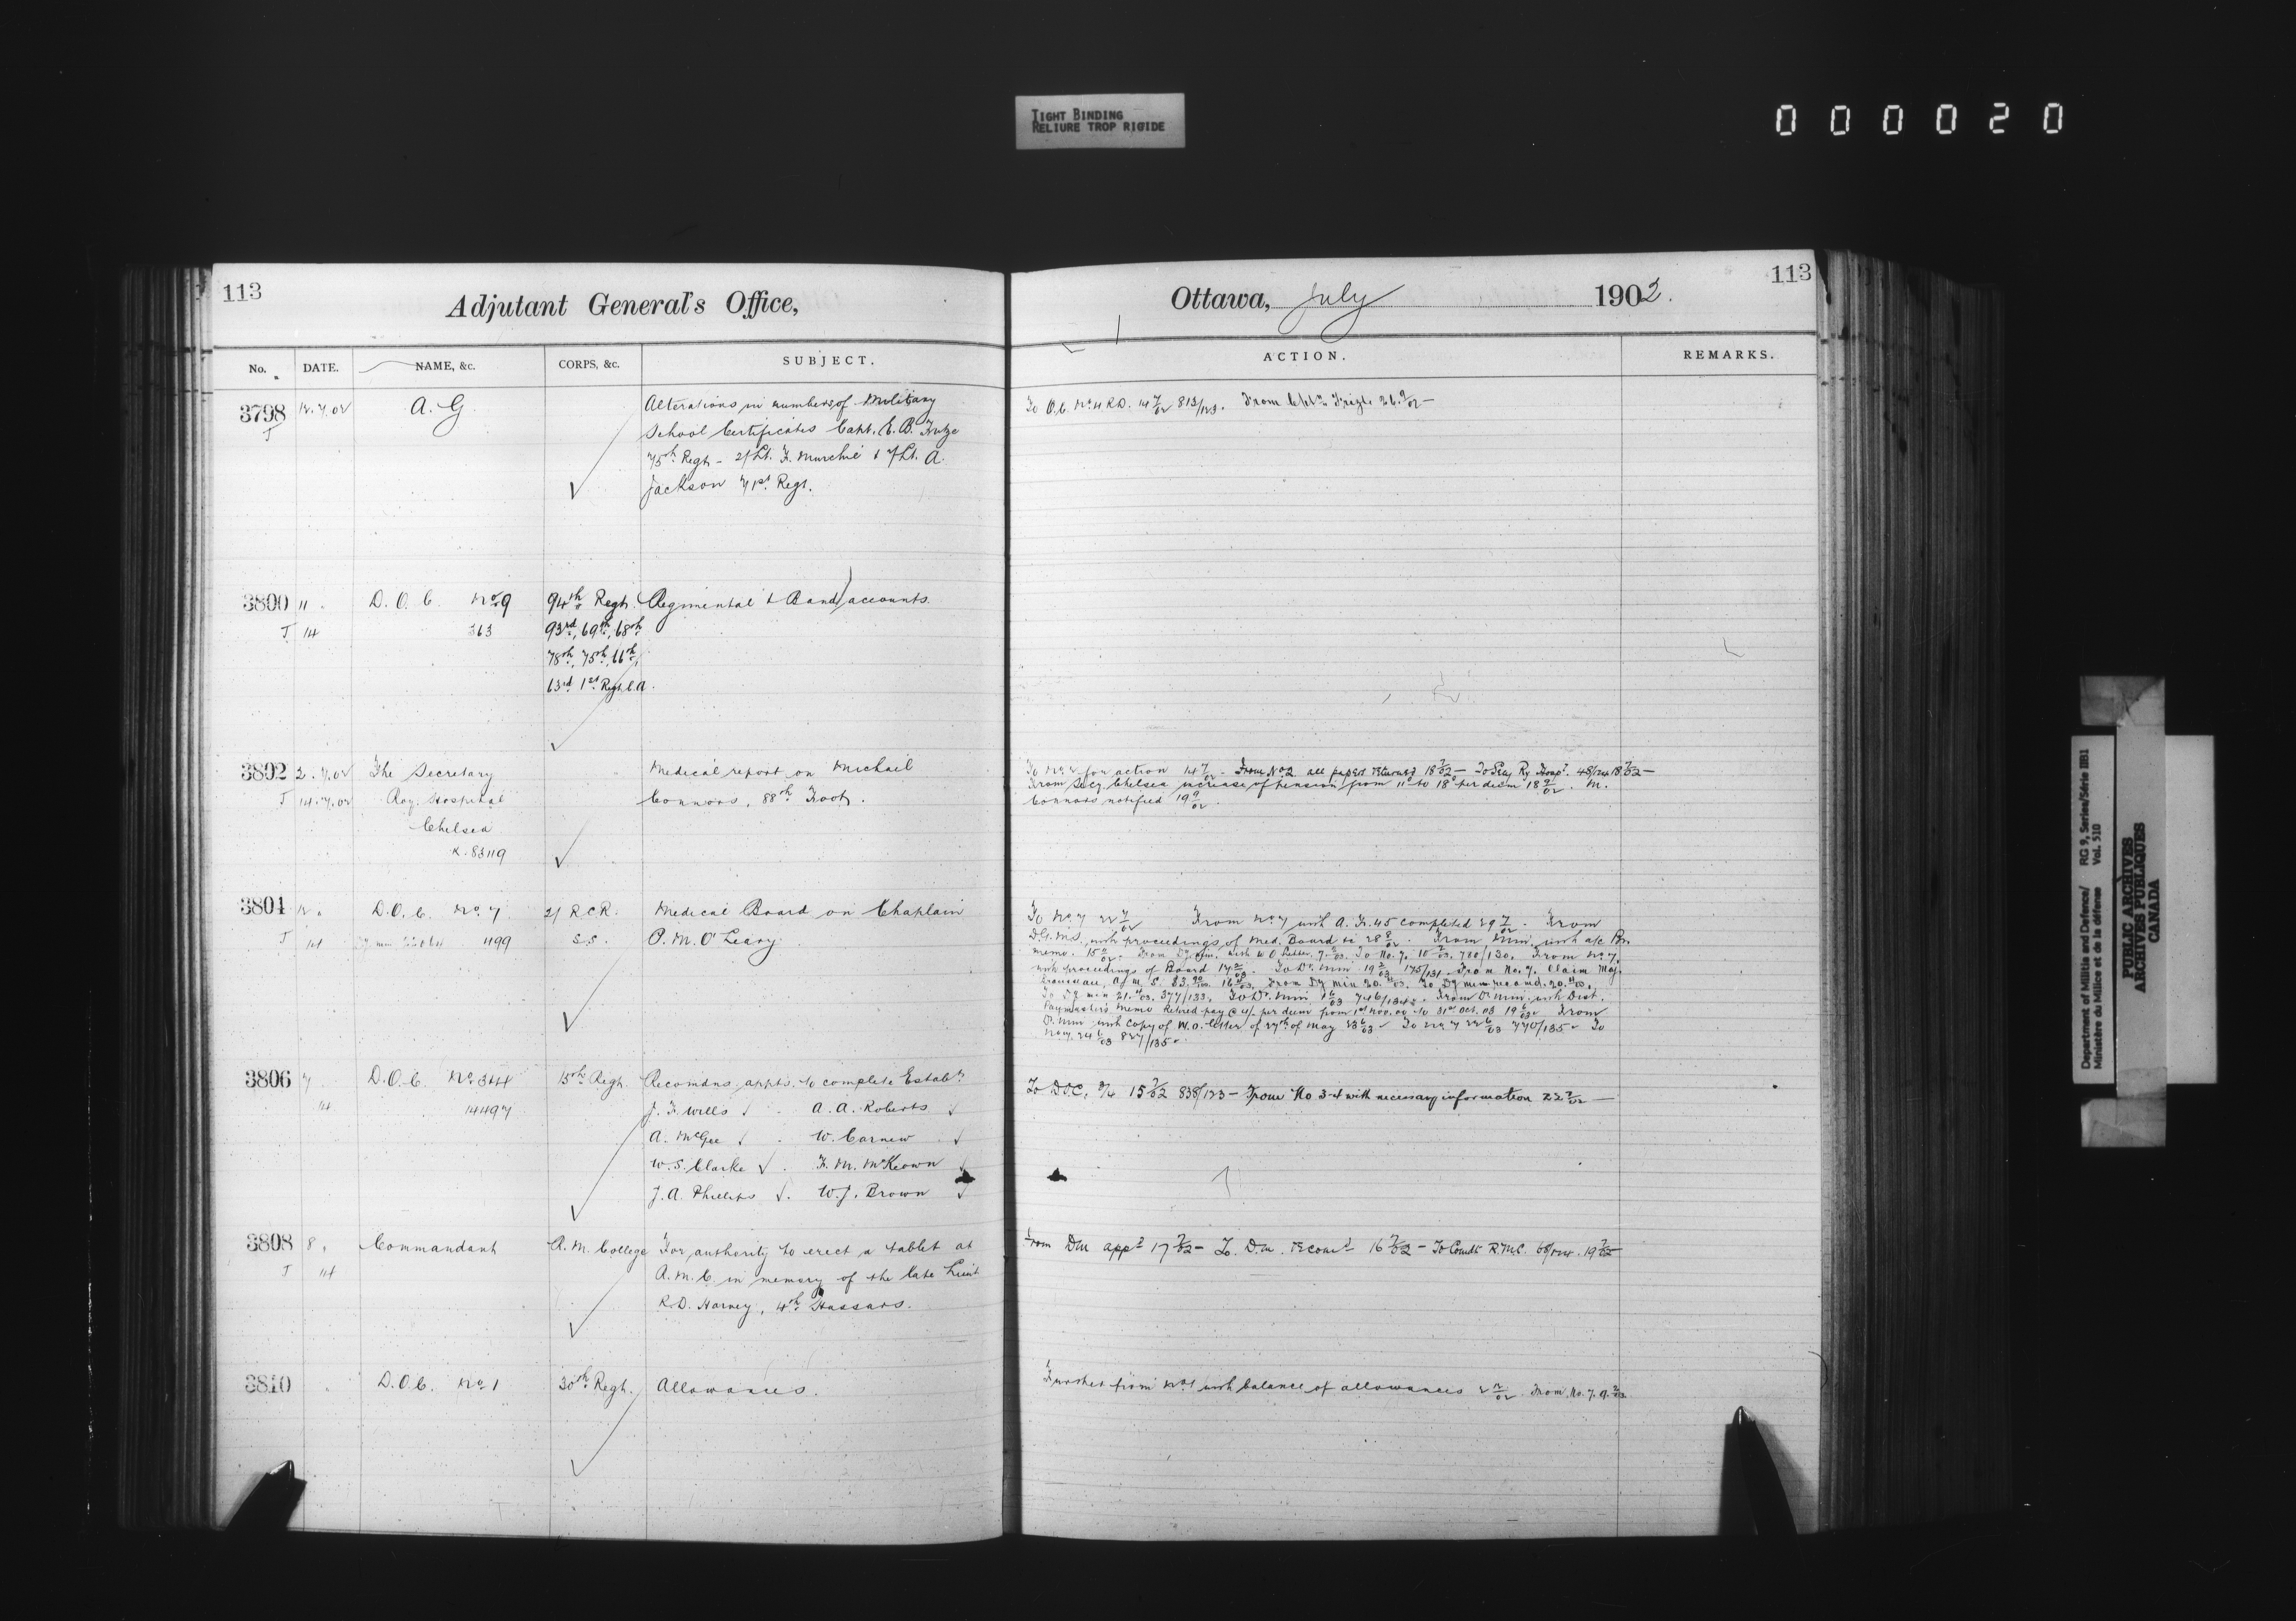 TIGHT BINDING
RELIURE TROP RIGIDE
000020
113
Adjutant General's Office,
No. DATE. NAME, &c. CORPS, &c. SUBJECT.
3798 12.7.02 A.G Alterations in numbers of Military
J School Certificates Capt. E. B.
75th Regt - 2/Lt. F. Murchie & 2/Lt. A.
Jackson 71st Regt.
3800 11 D.O.C. No 9 94th Regt. Regimental & Band accounts.
J 14 363 93rd, 69th, 68th
78th, 75th, 66th,
63rd 1st Regt. C.A.
3802 2.7.02 The Secretary Medical report on Michael
J 14.7.02 Roy. Hospital Connors, 88th Foot.
Chelsea
K.83119
3804 12 D.O.C. No. 7 2/ R.C.R. Medical Board on Chaplain
J 14 1199 S.S. P. M. O'Leary
3806 7 D.O.C. No. 3&4 15th Regt. Recomdns. appts. to complete Establt
14 14497 J. F. Wills A. A. Roberts
A. McGee W. Carnew
W. S. Clarke F. M. McKeown
J. A. Phillips W. J. Brown
3808 8 Commandant R. M. College For authority to erect a tablet at
J 14 R. M. C. in memory of the late Lieut
R. D. Harvey, 4th Hussars.
3810 D.O.C. No 1 30th Regt. Allowances.
113
Ottawa, July 1902.
ACTION. REMARKS.
To O.C. No 4 R.D. 14 7/02 813/123. From 26.9/02 —
To No 2 for action 14 7/02 - From No 2 all papers returned 18 7/02 - To Secy Ry Hospl. 48/124 18 7/02 —
From Secy. Chelsea increase of pension from 11d to 18d per diem 18 9/02. M.
Connors notified 19 9/02.
To No 7 22 7/02 From No 7 with A. F. 45 completed 29 7/02. From
D.G.M.S. with proceedings of Med. Board 28 8/02. From with a/c Pr.
memo. 15 From with W O letter, To No. 7. 780/130. From No 7.
with proceedings of Board To Dr. Min 175/131 From No. 7. Claim Maj.
To Dy min 377/133. To Dr. Min 746/134 From Dr. Min. with Dist.
Paymaster's memo Retired pay @ 4/- per diem from 1st Nov. 00 to 31st Oct. 03 19 6/03 From
Dr. Min with copy of W.O. letter of 27th of May 23 6/03 To No 7 22 6/03 770/135 To
No 7. 24 6/03 827/135
To D.O.C. 3/4 15 7/02 838/123 — From No 3-4 with necessary information 22 7/02 —
From Dm appd 17 7/02 - To. D.m. Recomd 16 7/02 - To Comdt R.M.C. 68/124. 19 7/02
Further from No 1 with balance of allowances From No. 7. 9.
Department of Militia and Defence/ RG 9, Series/Série IIB1
Ministère du Milice et de la défense Vol. 510
PUBLIC ARCHIVES
ARCHIVES PUBLIQUES
CANADA